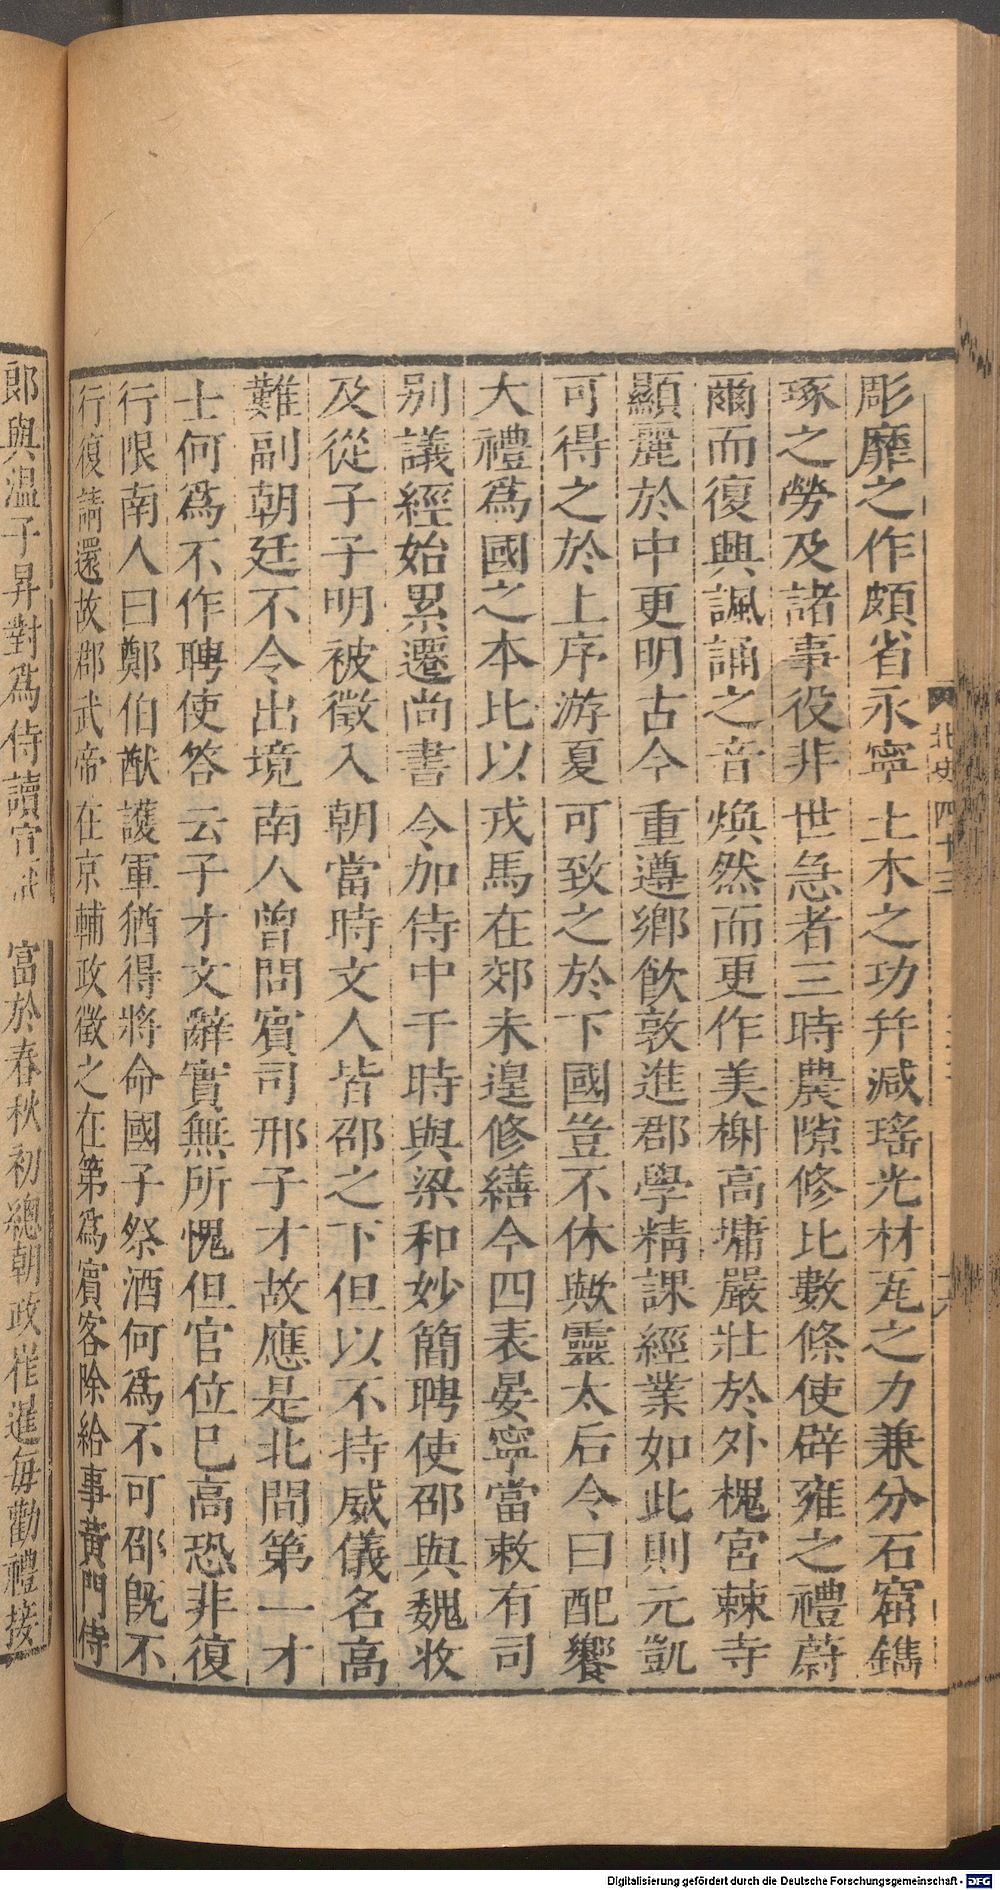 彫靡之作頗省永寧土木之功幷減瑤光材瓦之力兼分石窟鐫
琢之勞及諸事役非世急者三時農隙修比數條使辟雍之禮蔚
爾而復興諷誦之音煥然而更作美榭高墉嚴壯於外槐宮棘寺
顯麗於中更明古今重遵鄉飮敦進郡學精課經業如此則元凱
可得之於上序游夏可致之於下國豈不休歟靈太后令曰配饗
大禮爲國之本比以戎馬在郊未遑修繕今四表晏寧當敕有司
别議經始累遷尚書令加侍中于時與梁和妙簡聘使邵與魏收
及從子子明被徵入朝當時文人皆邵之下但以不持威儀名高
難副朝廷不令出境南人曾問賓司邢子才故應是北間第一才
士何爲不作聘使答云子才文辭實無所愧但官位已高恐非復
行限南人曰鄭伯猷護軍猶得將命國子祭酒何爲不可邵旣不
行復請還故郡武帝在京輔政徵之在第爲賓客除給事黃門侍
北史四十三
郞與温子昇對爲侍讀宣武富於春秋初總朝政崔暹每勸禮接
Digitalisierung gefördert durch die Deutsche Forschungsgemeinschaft - DFG